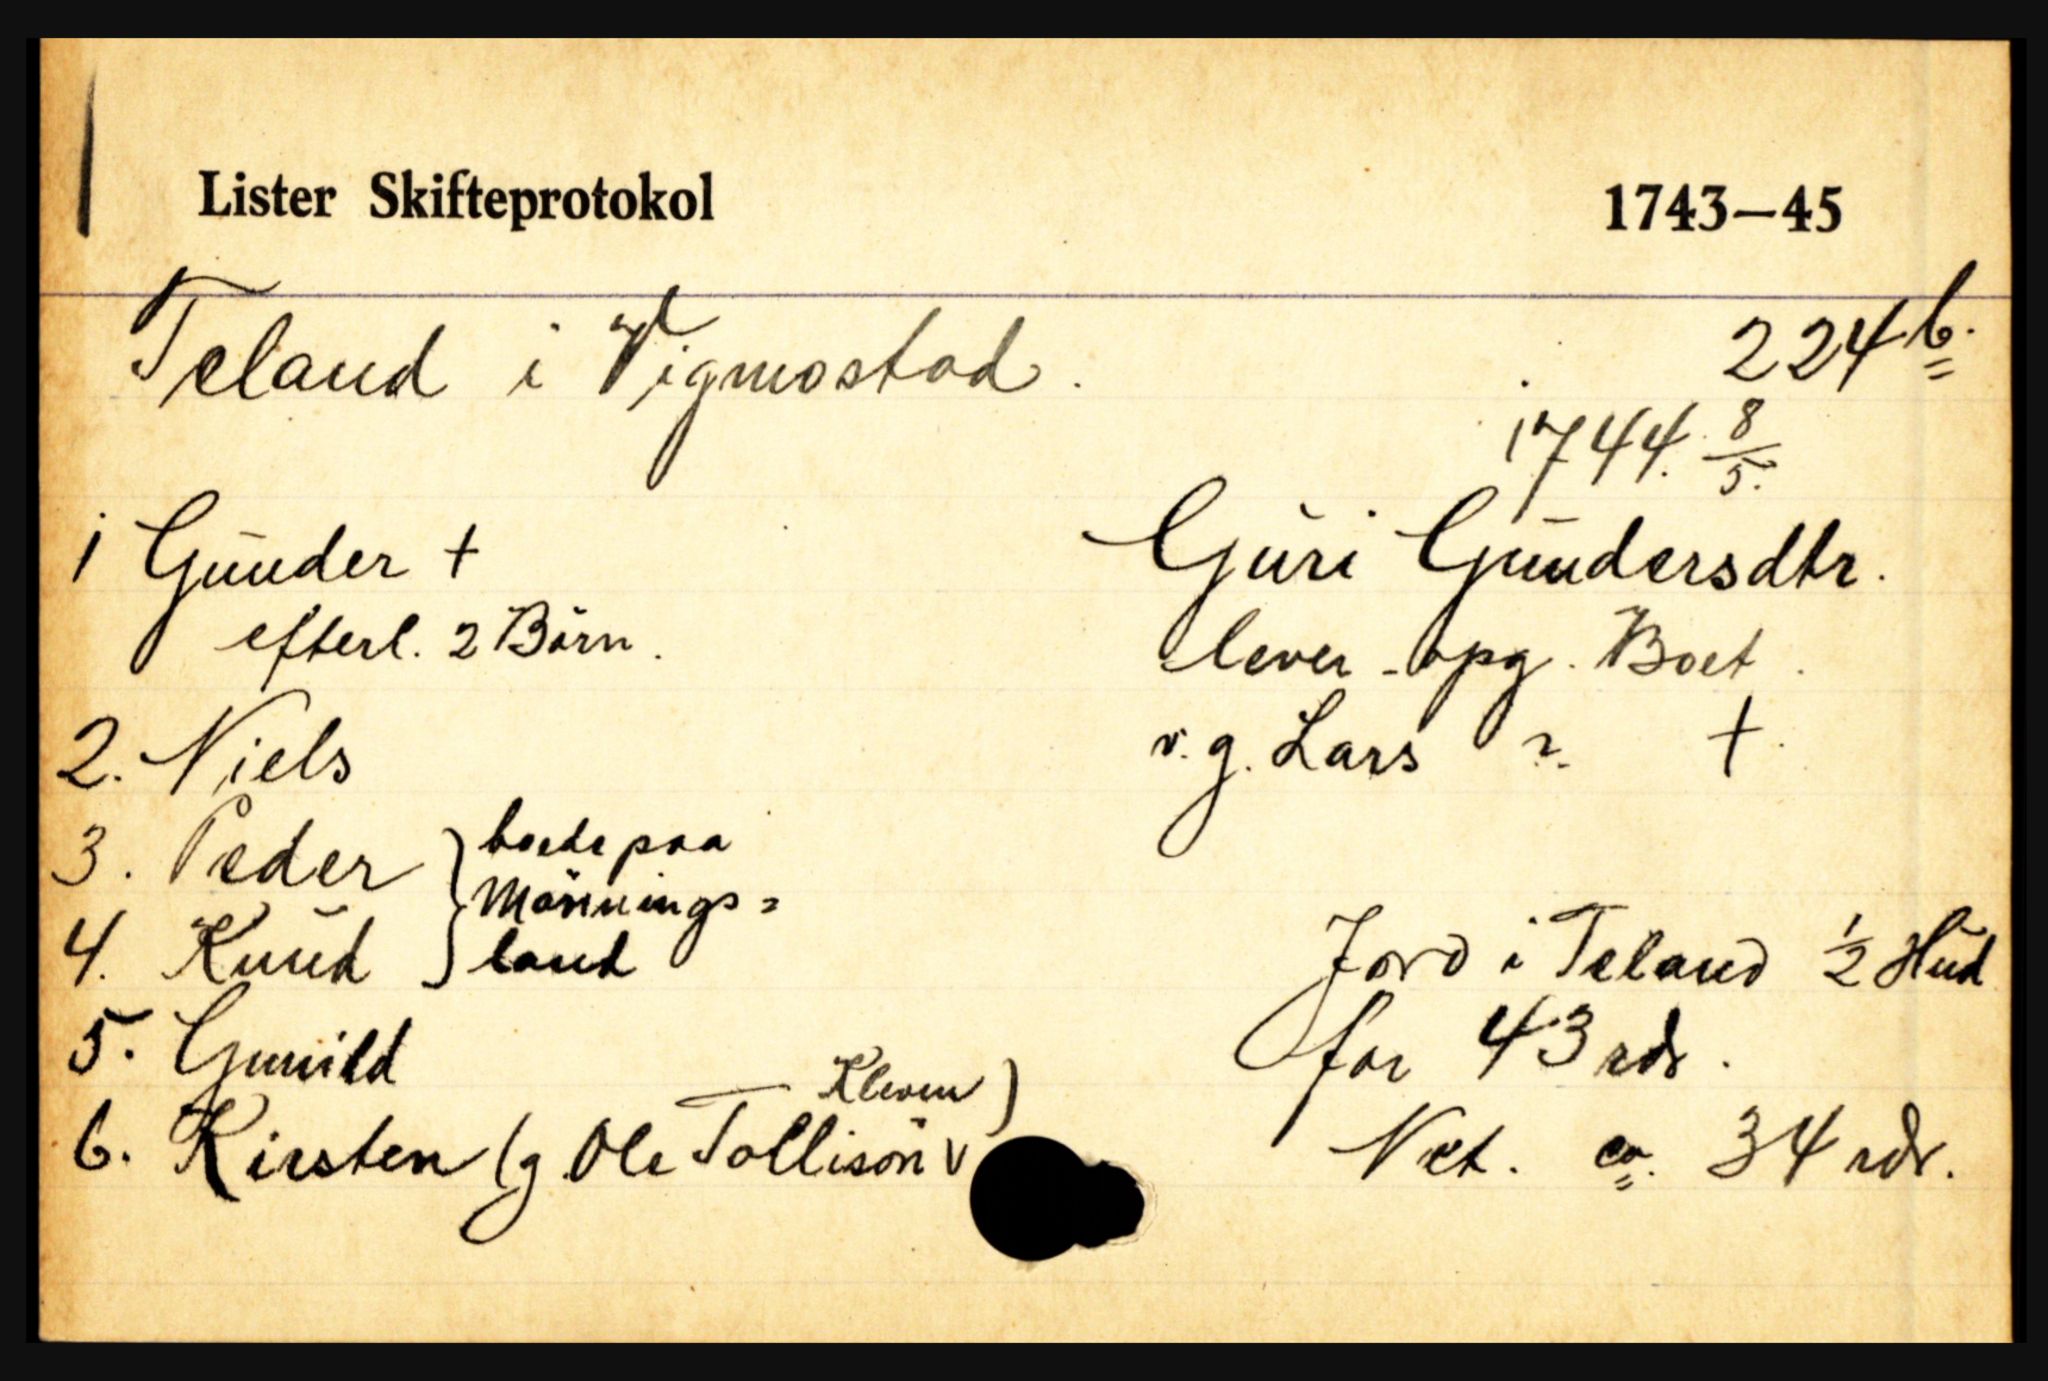 Lister Skifteprotokol 1743—45
Teland i Vigmostad. 224 b.
1744. 8/5.
1 Gunder + Guri Gundersdtr.
efterl. 2 Börn. lever - opg. Boet.
2. Niels v. g. Lars ? +
3. Peder } boede paa
Mönnings=
4. Knud land
Jord i Teland 1/2 Hud
5. Gunild for 43 rdr.
Kleven)
6. Kirsten (g. Ole Tollisön Net. ca. 34 rdr.